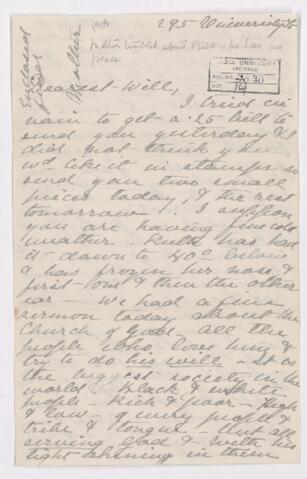 295 University St
Mother troubled about Ruth - he has no
McGILL UNIVERSITY
ARCHIVES
ACC. NO.
REF.
Enclosed
Mother
Dearest Will,
I tried in
vain to get a $5 bill to
send you yesterday & I
did not think you
wd like it in stamps so
send you two small
pieces today, & the rest
tomorrow. I suppose
you are having fine cold
weather. Ruth has had
it down to 40° below
& has frozen her nose &
first one & then the other
ear - We had a fine
sermon today about the
Church of God - all the
people who love him &
try to do his will - It is
the biggest society in the
world. Black & white
people - Rich & poor - High
& low - of every people &
tribe & tongue - but all
serving God & with his
light shining in them